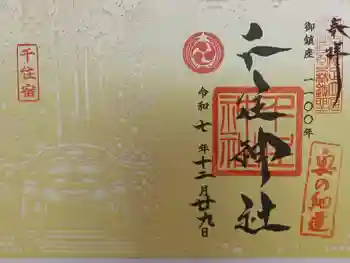 奉拝
御鎮座一一〇〇年
千住神社
奥の細道
令和七年十二月廿九日
千住宿